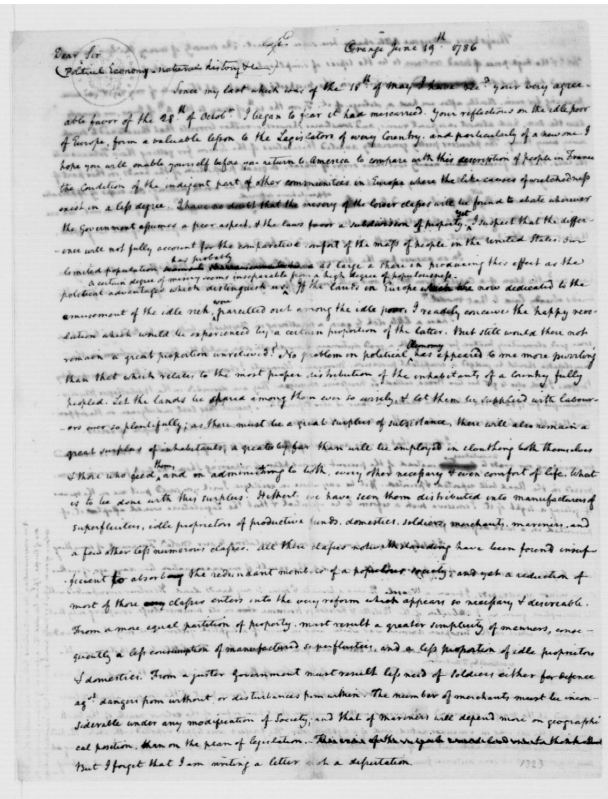 Orange June 19th 1786
Dear Sir
Political Economy natural history &c
Since my last which was of the 18th of May I have recd your very agree-
able favor of the 28th of Octobr. I began to fear it had miscarried. Your reflections on the idle poor
of Europe, form a valuable lesson to the Legislators of every Country, and particularly of a new one. I
hope you will enable yourself before you return to America to compare with this description of people in France
the Condition of the indigent part of other communities in Europe where the like causes of wretchedness
exist in a less degree. I have no doubt that the misery of the lower classes will be found to abate wherever
the Government assumes a freer aspect, & the laws favor a subdivision of property yet I suspect that the differ-
ence will not fully account for the comparative comfort of the mass of people in the United States. Our
limited population has probably as large a share in producing this effect as the
political advantages which distinguish us. A certain degree of misery seems inseparable from a high degree of populousness. If the lands in Europe which are now dedicated to the
amusement of the idle rich, were parcelled out among the idle poor, I readily conceive the happy revo-
lution which would be experienced by a certain proportion of the latter. But still would there not
remain a great proportion unrelieved? No problem in political Œconomy has appeared to me more puzzling
than that which relates to the most proper distribution of the inhabitants of a Country fully
peopled. Let the lands be shared among them ever so wisely, & let them be supplied with labour-
ers ever so plentifully; as there must be a great surplus of subsistence, there will also remain a
great surplus of inhabitants, a greater by far than will be employed in cloathing both themselves
& those who feed them, and in administering to both, every other necessary & even comfort of life. What
is to be done with this surplus? Hitherto we have seen them distributed into manufacturers of
superfluities, idle proprietors of productive funds, domestics, soldiers, merchants, mariners, and
a few other less numerous classes. All these classes notwithstanding have been found insuf-
ficient to absorb the redundant members of a populous society; and yet a reduction of
most of those classes enters into the very reform which appears so necessary & desireable.
From a more equal partition of property, must result a greater simplicity of manners, conse-
quently a less consumption of manufactured superfluities, and a less proportion of idle proprietors
& domestics. From a juster Government must result less need of soldiers either for defence
agst. dangers from without or disturbances from within. The number of merchants must be incon-
siderable under any modification of Society; and that of mariners will depend more on geographi-
cal position, than on the plan of legislation.
But I forget that I am writing a letter not a dissertation.